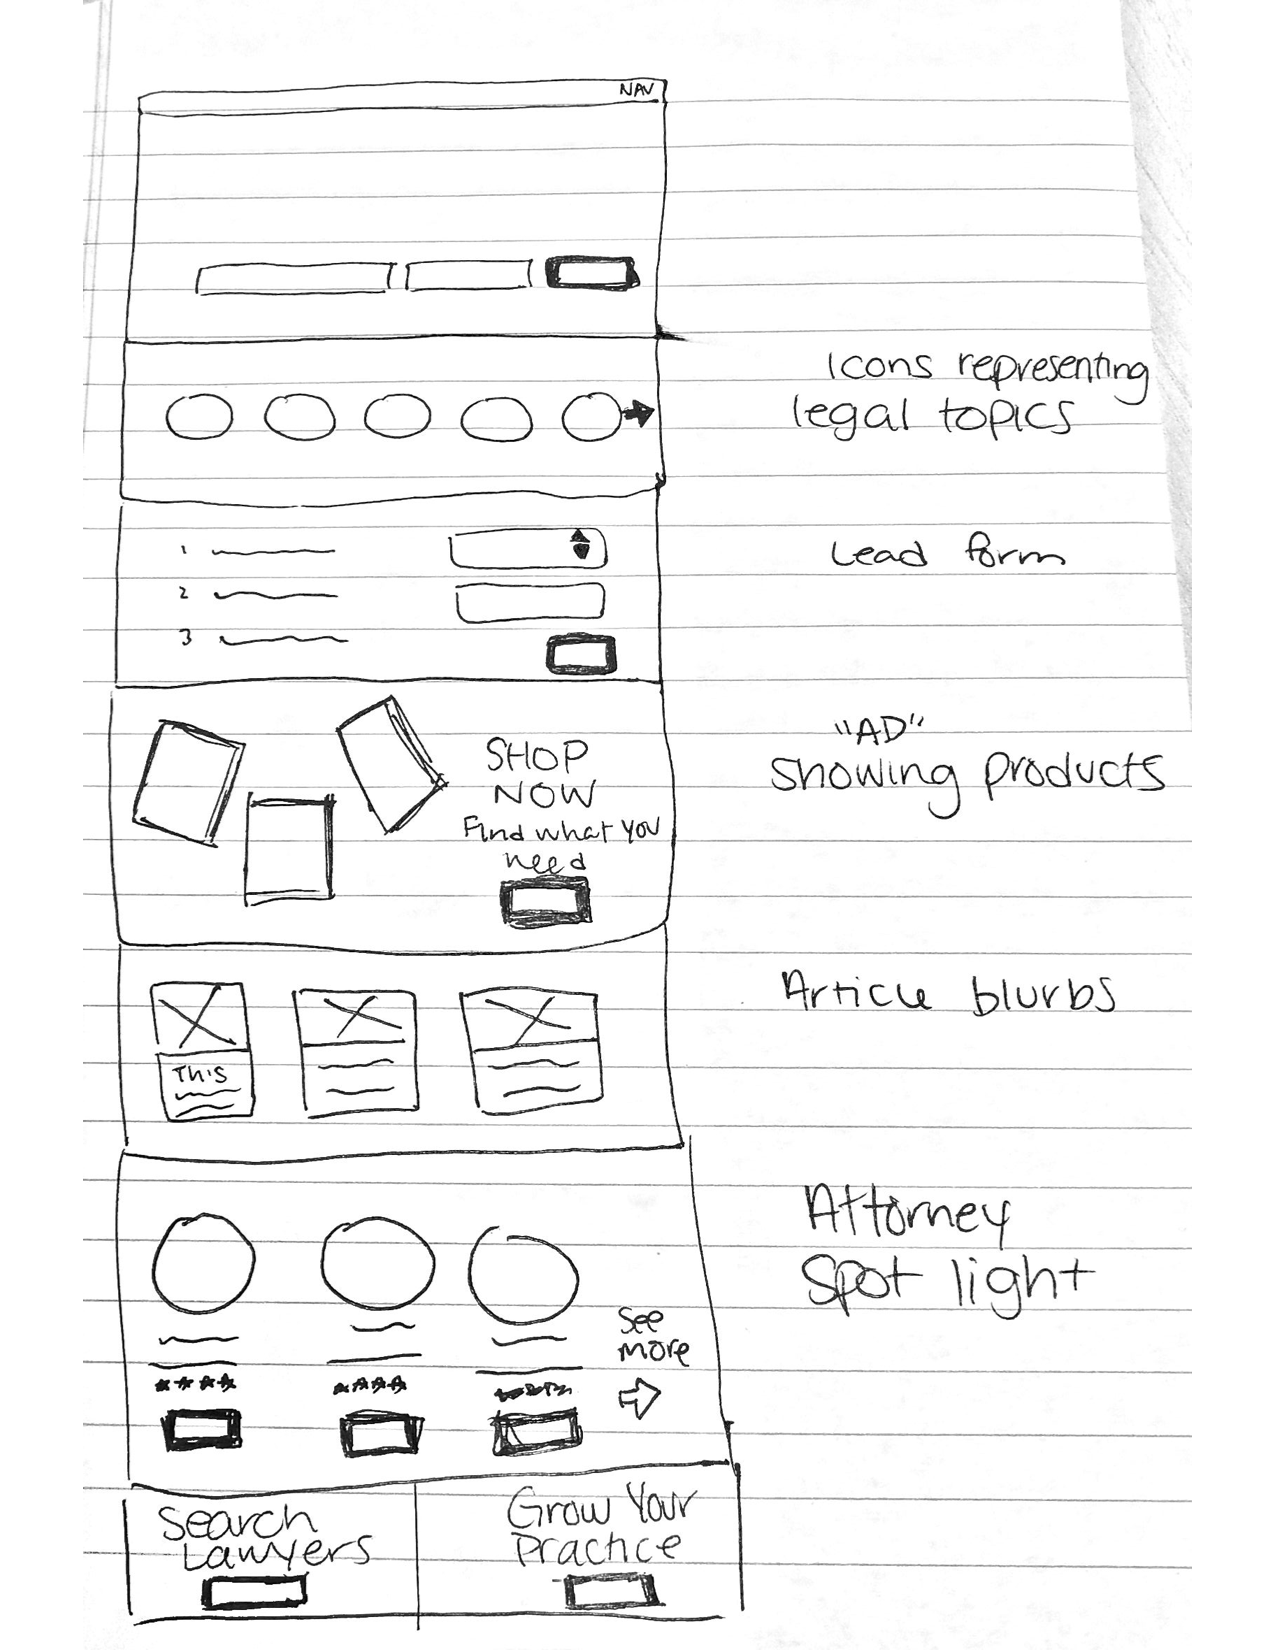 NAV
Icons representing
legal topics
1
2
3
Lead form
SHOP
NOW
Find what you
need
"AD"
Showing products
Article blurbs
This
Attorney
Spot light
See
more
Search
Lawyers
Grow Your
Practice